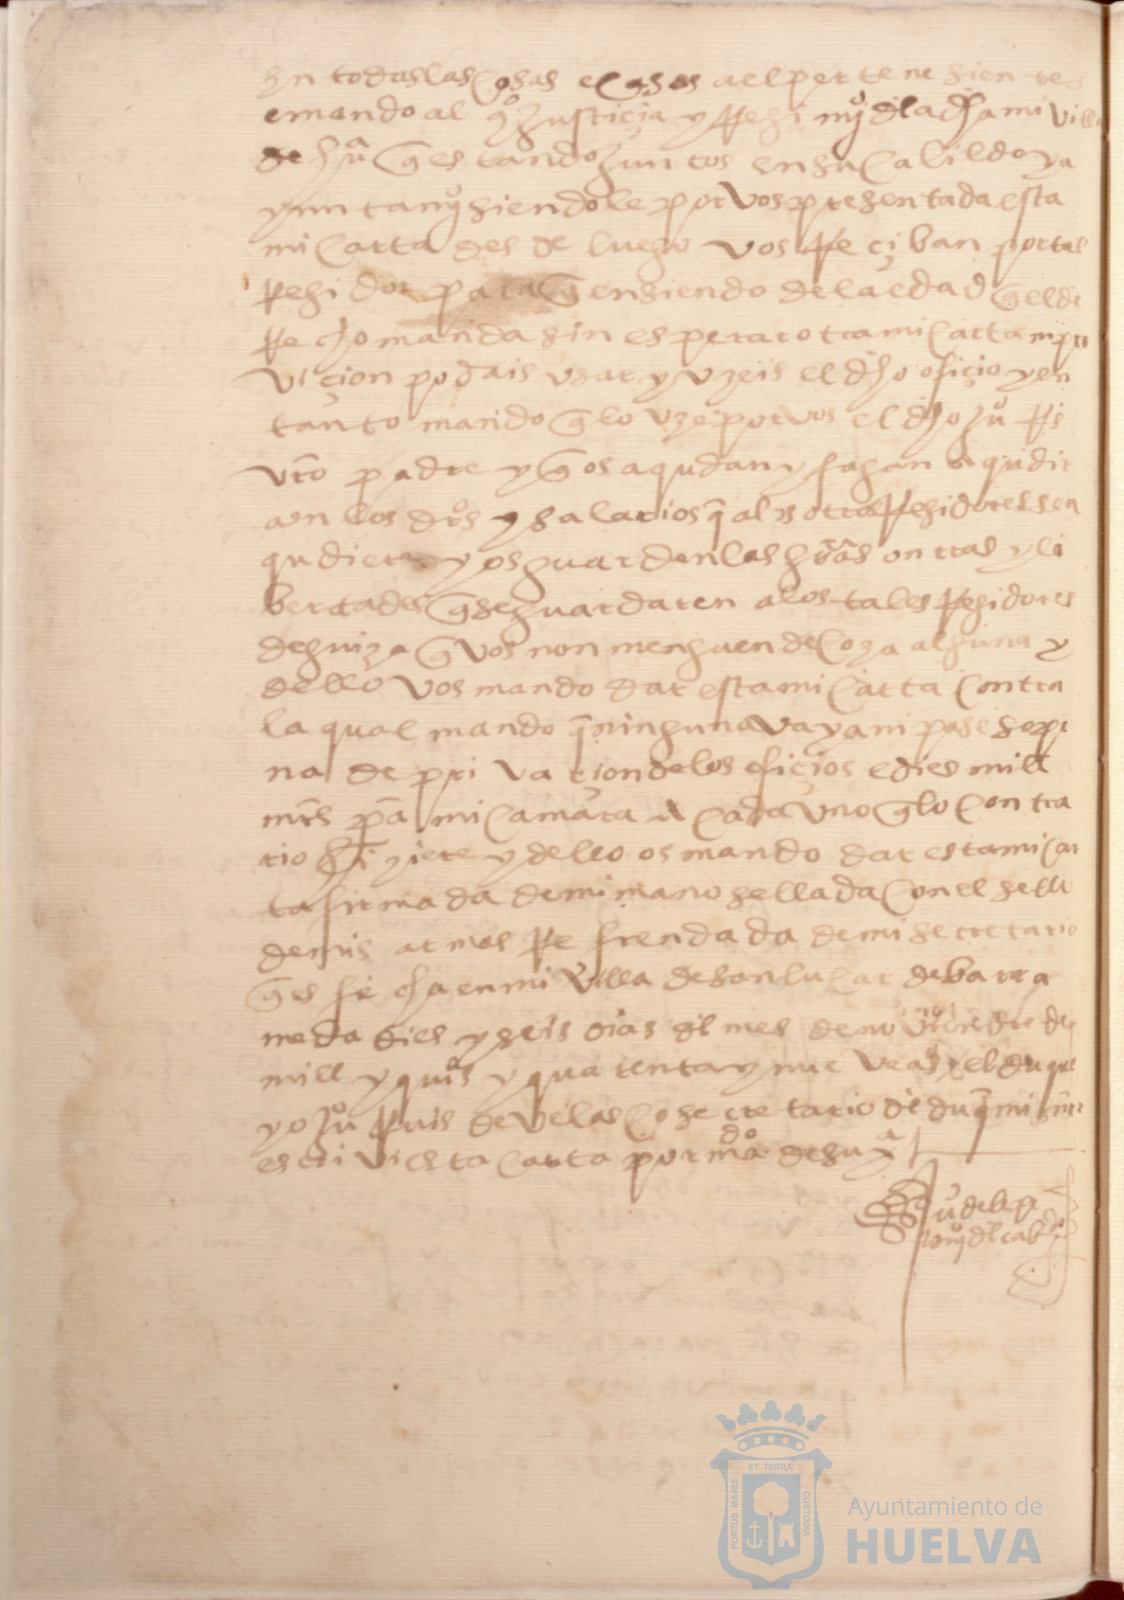 en todas las cosas e casos a el pertenesientes
e mando al qº justiçia y rregimyº dla dha mi villa
de hua q estando juntos en su cabildo y a
yuntamyº siendole por vos presentada esta
mi carta desde luego vos rreçiban por tal
rregidor para q en siendo de la edad q el de
rrecho manda sin esperar otra mi carta ni pro
viçion podais usar y uzeis el dho ofiçio y en
tanto mando q lo uze por vos el dho juº rrs
vro padre y q os aqudan y fagan aqudir
con los drºs y salarios q a los otros rregidores se a
qudiere y os guarden las gras onrras y li
bertades q se guardaren a los tales rregidores
de guiza q vos non menguen de coza alguna y
dello vos mando dar esta mi carta contra
la qual mando q ninguna vaya ni pase so pe
na de privaçion de los ofiçios e dies mill
mrs pa mi camara a cada uno q lo contra
rio hiziere y dello os mando dar esta mi car
ta firmada de mi mano sellada con el sello
de mis armas rrefrendada de mi secretario
q es fecha en mi villa de sanlucar de barra
meda dies y seis dias dl mes de novienbre de
mill y quiºs y quarenta y nueve as y el duque
yo juº rruis de velasco secretario dl duq mi sr
escrivi esta carta por mdº de su sª
Juº de
dl cabdº
Ayuntamiento de
HUELVA
PORTUS MARIS
ET TERRA
CUSTODIA